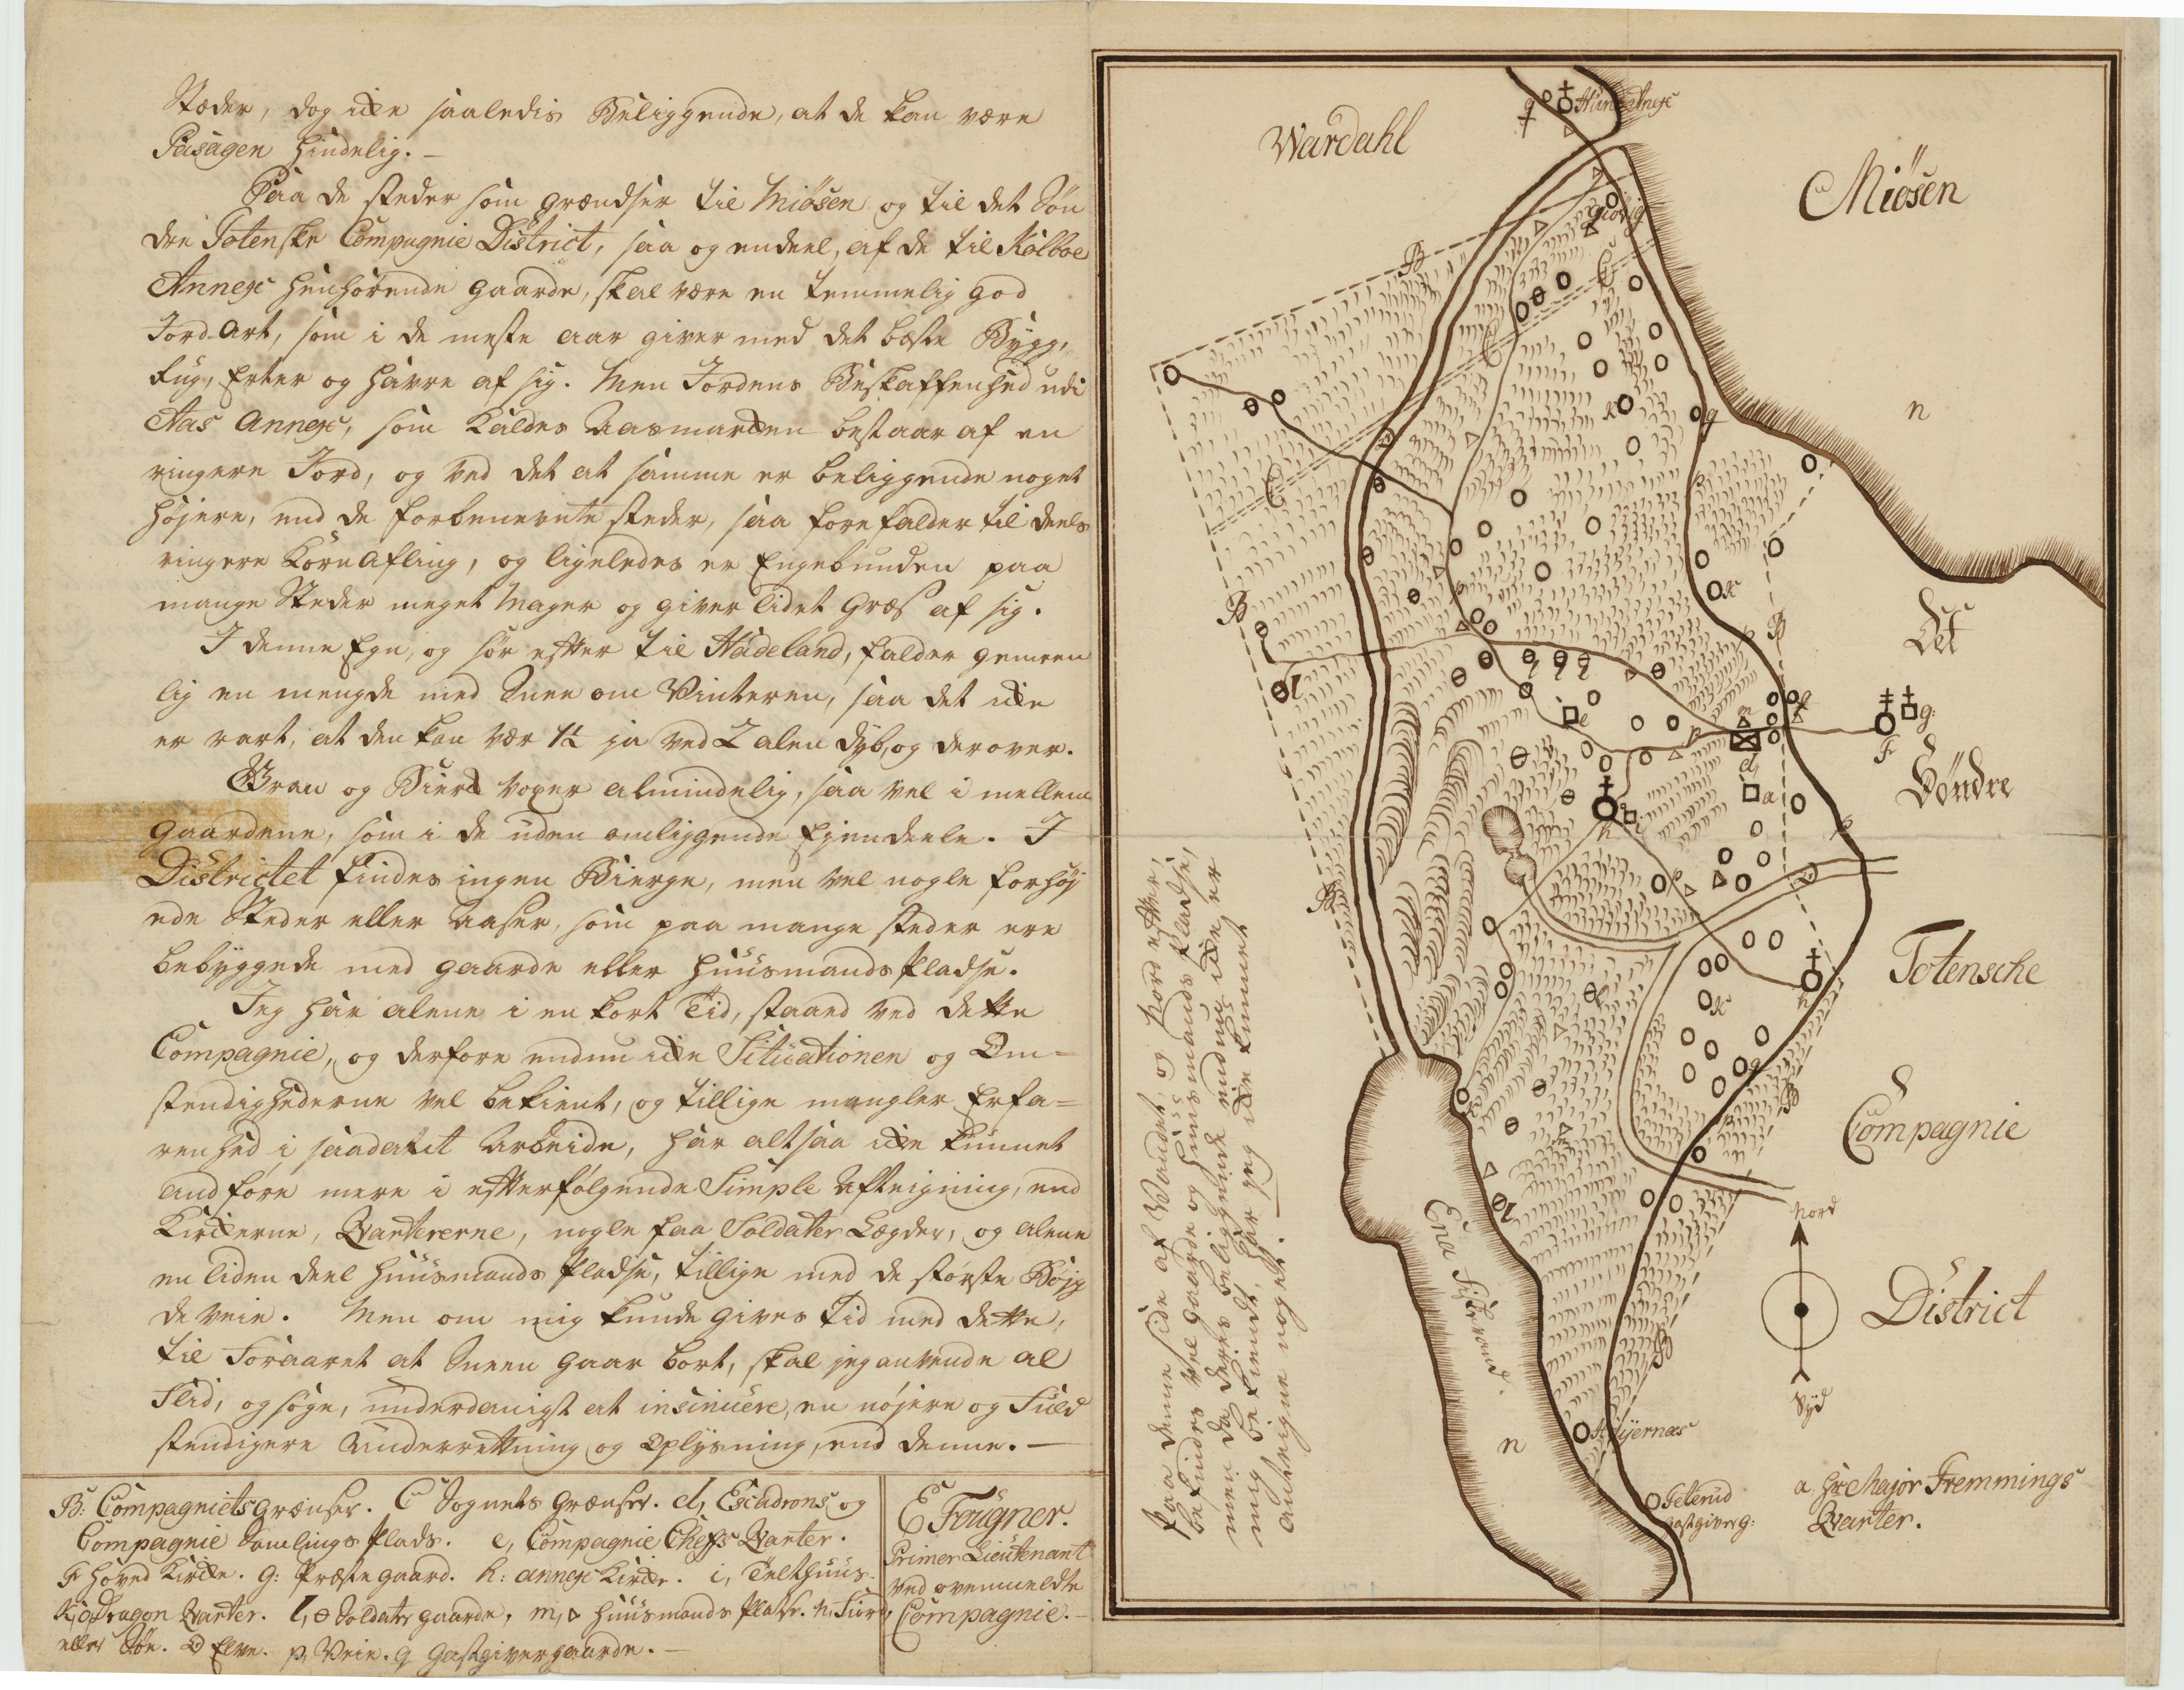 Stæder, dog ikke saaledis Beliggende, at de kan være
Pasagen hindelig. —
Paa de steder som grændser til Miösen og til det Sön
dre Totenske Compagnie District, saa og endeel, af de til Kolboe
Annex henhörende gaarde, skal være en temmelig god
Jord-Art, som i de meste aar giver med det beste Bygg,
Rug, Erter og Havre af sig. Men Jordens Beskaffenhed udi
Aas Annex, som kaldes Aasmarken bestaar af en
ringere Jord, og ved det at samme er beliggende noget
höjere, end de forbenevnte steder, saa forefalder til deels
ringere Kornafling, og ligeledes er Engebunden paa
mange Steder meget Mager og giver lidet Græs af sig.
I denne Egn, og sør efter til Hadeland, falder gemeen
lig en mengde med Snee om Vinteren, saa det ikke
er rart, at den kan vær 1½ ja ved 2 alen dyb, og derover.
Gran og Bierk voxer almindelig, saa vel i mellem
gaardene, som i de uden omliggende Ejendeele. I
Districtet findes ingen Bierge, men vel nogle forhöj
ede Steder eller Aaser, som paa mange steder ere
bebyggede med gaarde eller Huusmands Pladse.
Jeg har alene i en kort Tid, staaed ved dette
Compagnie, og derfore endnu ikke Situationen og Om-
stendighederne vel bekient, og tillige mangler Erfa-
renhed i saadant Arbeide, har altsaa ikke kunnet
andföre mere i efterfölgende Simple Afteigning, end
Kirkerne, Qvartererne, nogle faa Soldater Lægder, og alene
en liden deel Huusmands Pladse, tillige med de störste Böjg
de veie. Men om mig kunde gives Tid med dette,
til Foraaret at Sneen gaar bort, skal jeg anvende al
Flid, og söge, underdanigst at insinuere, en nöjere og Fuld
stendigere Underrettning og Oplysning, end denne. —
B: Compagniets grænser. C Sognets grænser. d, Escadrons og
Compagnie Samlings Plads. e, Compagnie Chefs Qvarter.
F Hoved Kirke. g: Præstegaard. h: annex Kirke. i, Telthuus.
k, o, Dragon Qvarter. l, ⊖ Soldater gaarde, m, ▵ Huusmands Pladse. n, Fiord,
eller Söe. O Elve. p, Veie. q Gastgivergaarde. —
E Fougner.
Primer Lieutenant
ved ovenmeldte
Compagnie. —
Wardahl
Huns Anex
q
Miösen
n
Giövig
B
C
C
C
B
k
q
p
k
p
p
B
l
l l l
e
p
m
q
d,
a
g:
F
h
i
p
p
B
l
k
h
q
B
k
l
p
B
Det
Söndre
Totensche
Compagnie
District
Nord
Syd
Ena Fiskevand.
n
Hojernæs
Teterud
gastgiverg:
a, Hr Major Fremmings
Qvarter.
Paa denne side af Vandet, og Nord efter,
befindes vel gaarde og Huusmands Pladse,
men da deres beliggende endnu ikke er
mig bekiendt, har jeg ikke kunnet
anteigne noget. —